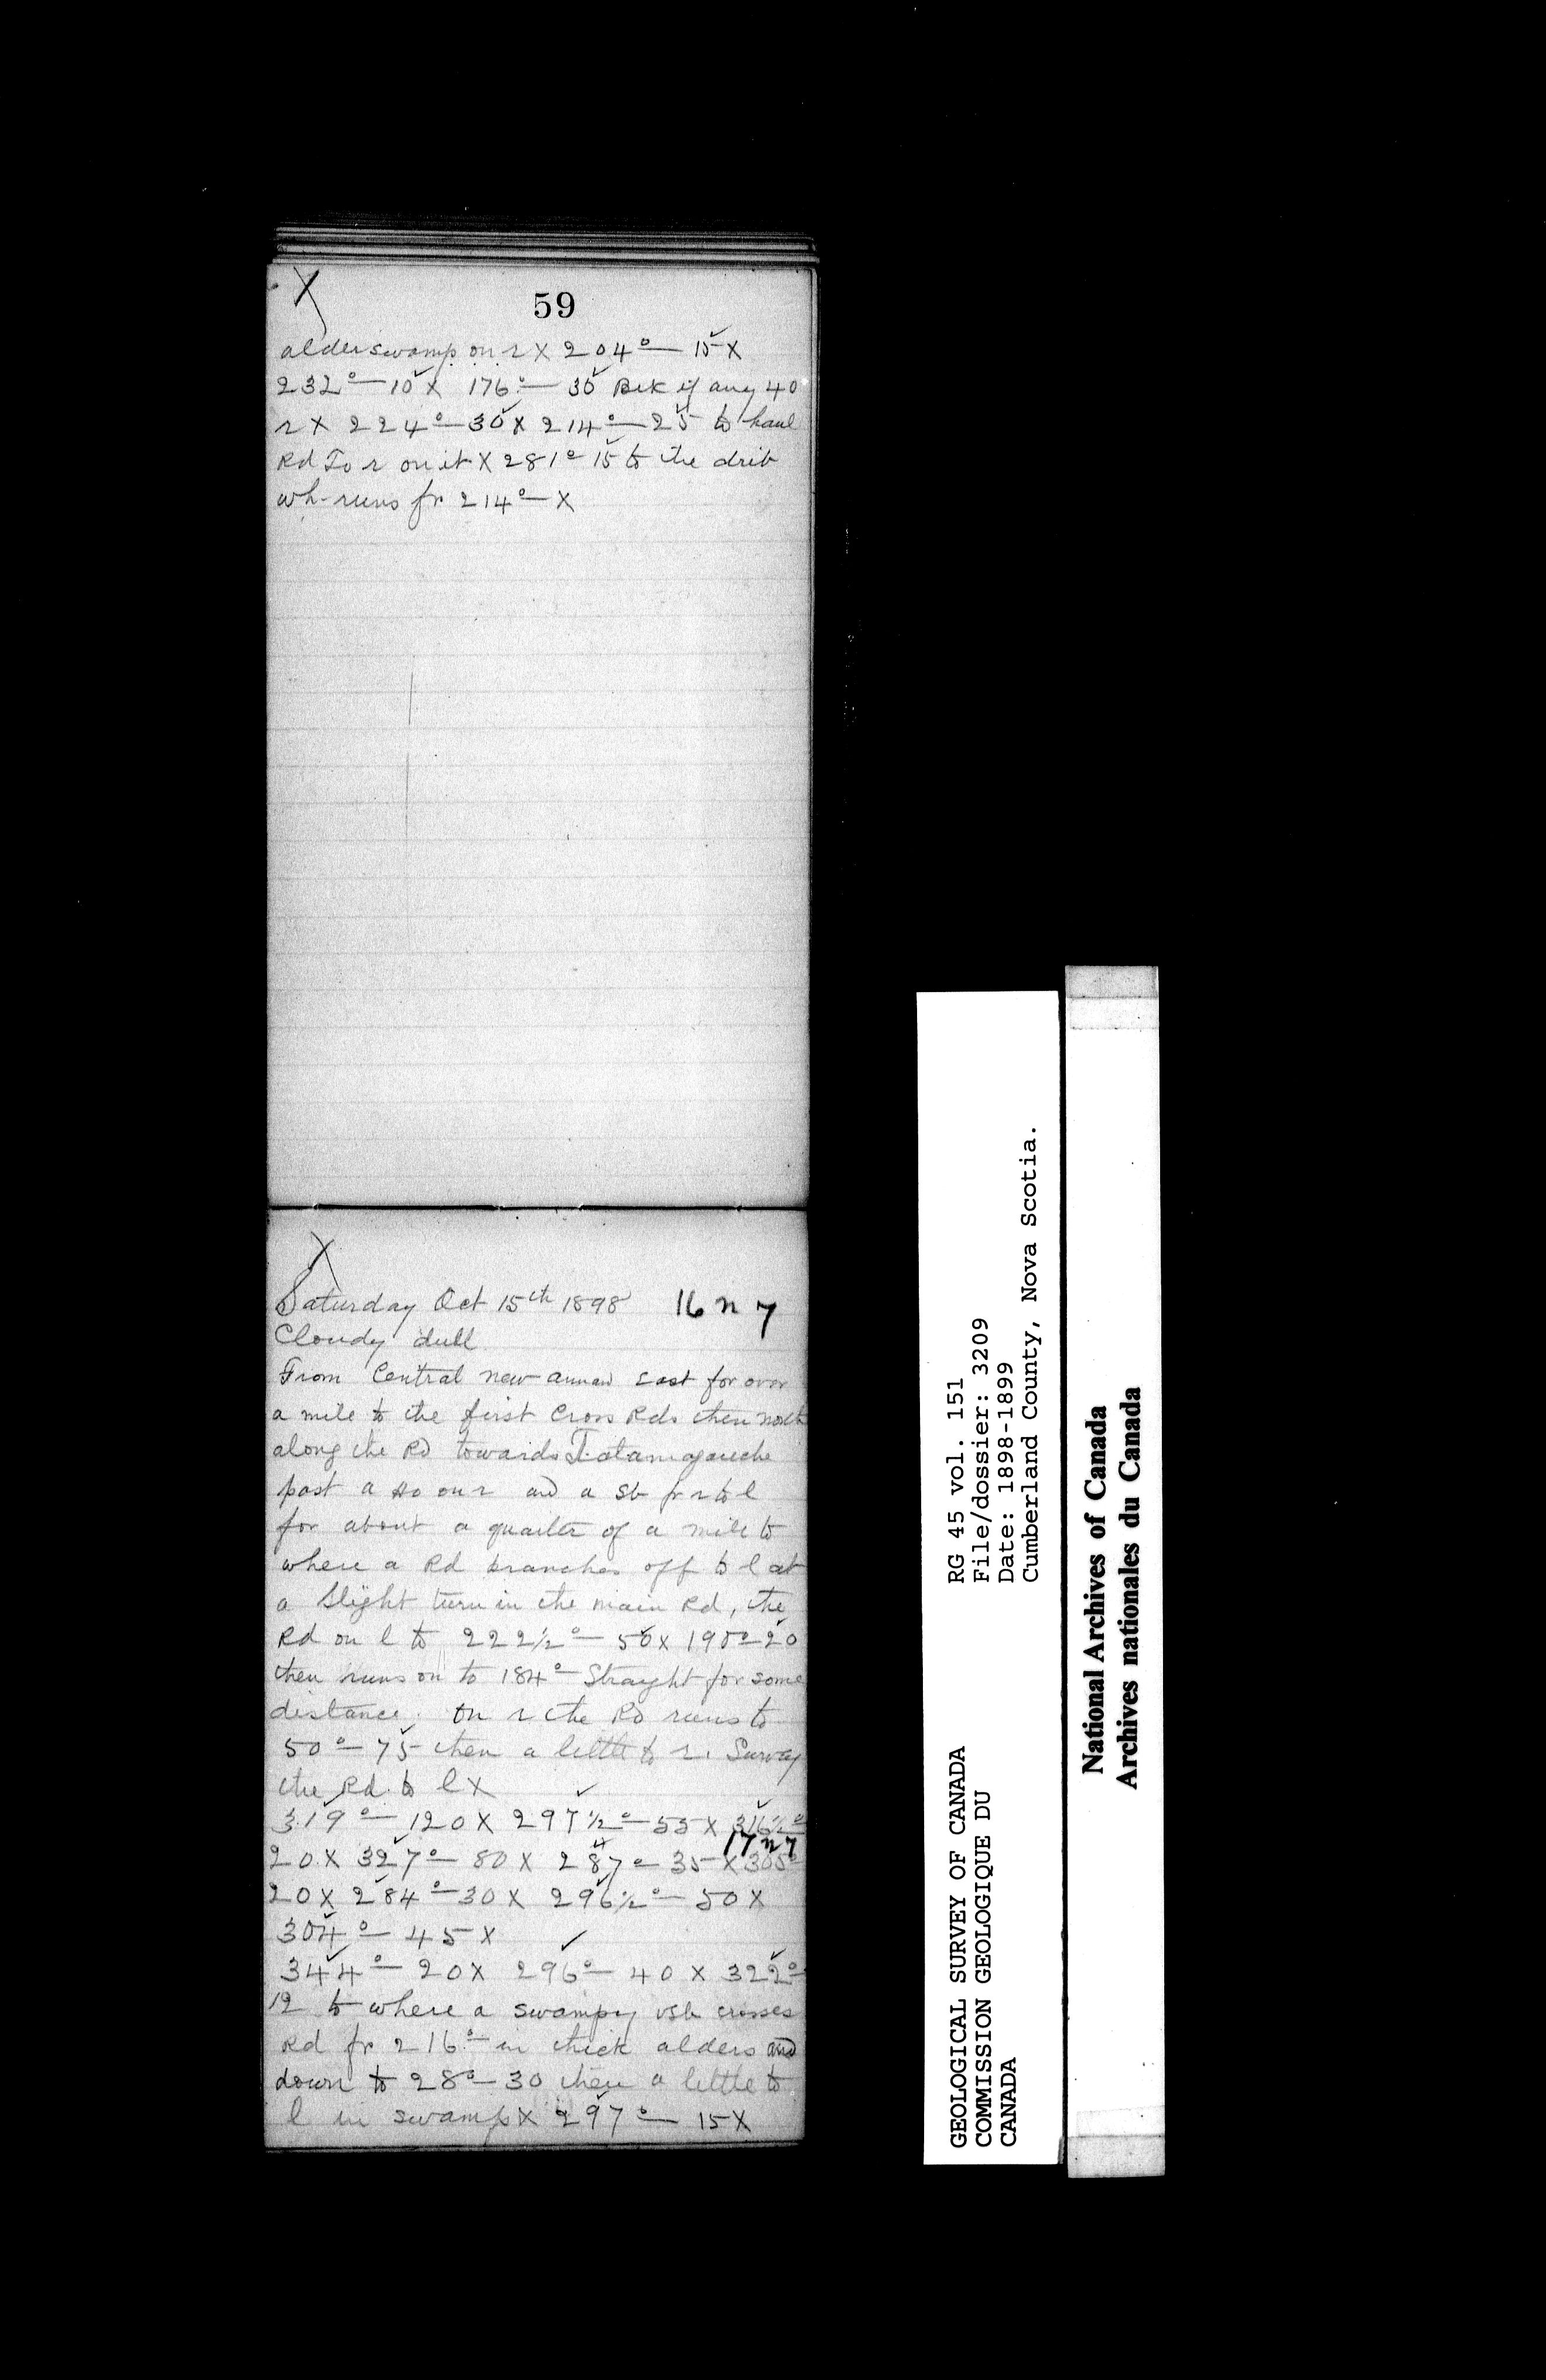 59
alder swamp on r X 204° — 15 X
232° — 10 X 176° — 30 Bek if any 40
r X 224° — 30 X 214° — 25 to haul
Rd To r on it X 281° 15 to the
wh runs fr 214° — X
Saturday Oct 15th 1898 16 n 7
Cloudy dull
From Central new annan East for over
a mile to the first Cross Rds then north
along the Rd towards Tatamagouche
past a on r and a Sb fr r to l
for about a quarter of a mile to
where a Rd branches off to l at
a Slight turn in the main Rd, the
Rd on l to 222½° — 50 X 190° — 20
then runs on to 184° — Straight for some
distance. On r the Rd runs to
50° — 75 then a little to r. Survey
the Rd to l X
319° — 120 X 297½° — 55 X 316½°
17 n 7
20 X 327° — 80 X 287° — 35 X 305°
20 X 284° — 30 X 296½° — 50 X
304° — 45 X
344° — 20 X 296° — 40 X 322°
12 to where a swampy vsb crosses
Rd fr 216° — in thick alders and
down to 28° — 30 then a little to
l in swamp X 297° — 15 X
GEOLOGICAL SURVEY OF CANADA
COMMISSION GEOLOGIQUE DU
CANADA
RG 45 vol. 151
File/dossier: 3209
Date: 1898-1899
Cumberland County, Nova Scotia.
National Archives of Canada
Archives nationales du Canada